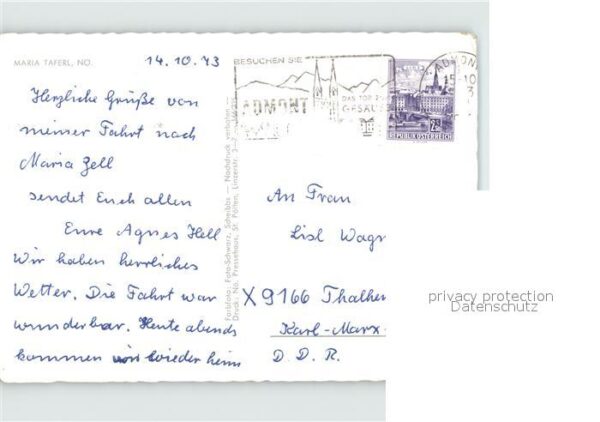 MARIA TAFERL, NO.
14.10.73
Herzliche Grüße von
meiner Fahrt nach
Maria Zell
sendet Euch allen
Eure Agnes Hell
Wir haben herrliches
Wetter. Die Fahrt war
wunderbar. Heute abends
kommen wir wieder heim
Farbfoto: Foto-Schwarz, Scheibbs — Nachdruck verboten
Druck: NÖ. Pressehaus, St. Pölten, Linzerstr. 3—7
BESUCHEN SIE
ADMONT
DAS TOR ZUM
GESÄUSE
ADMONT
15-10
REPUBLIK ÖSTERREICH
An Frau
Lisl Wagn
X9166 Thalhe
Karl-Marx-
D.D.R.
privacy protection
Datenschutz